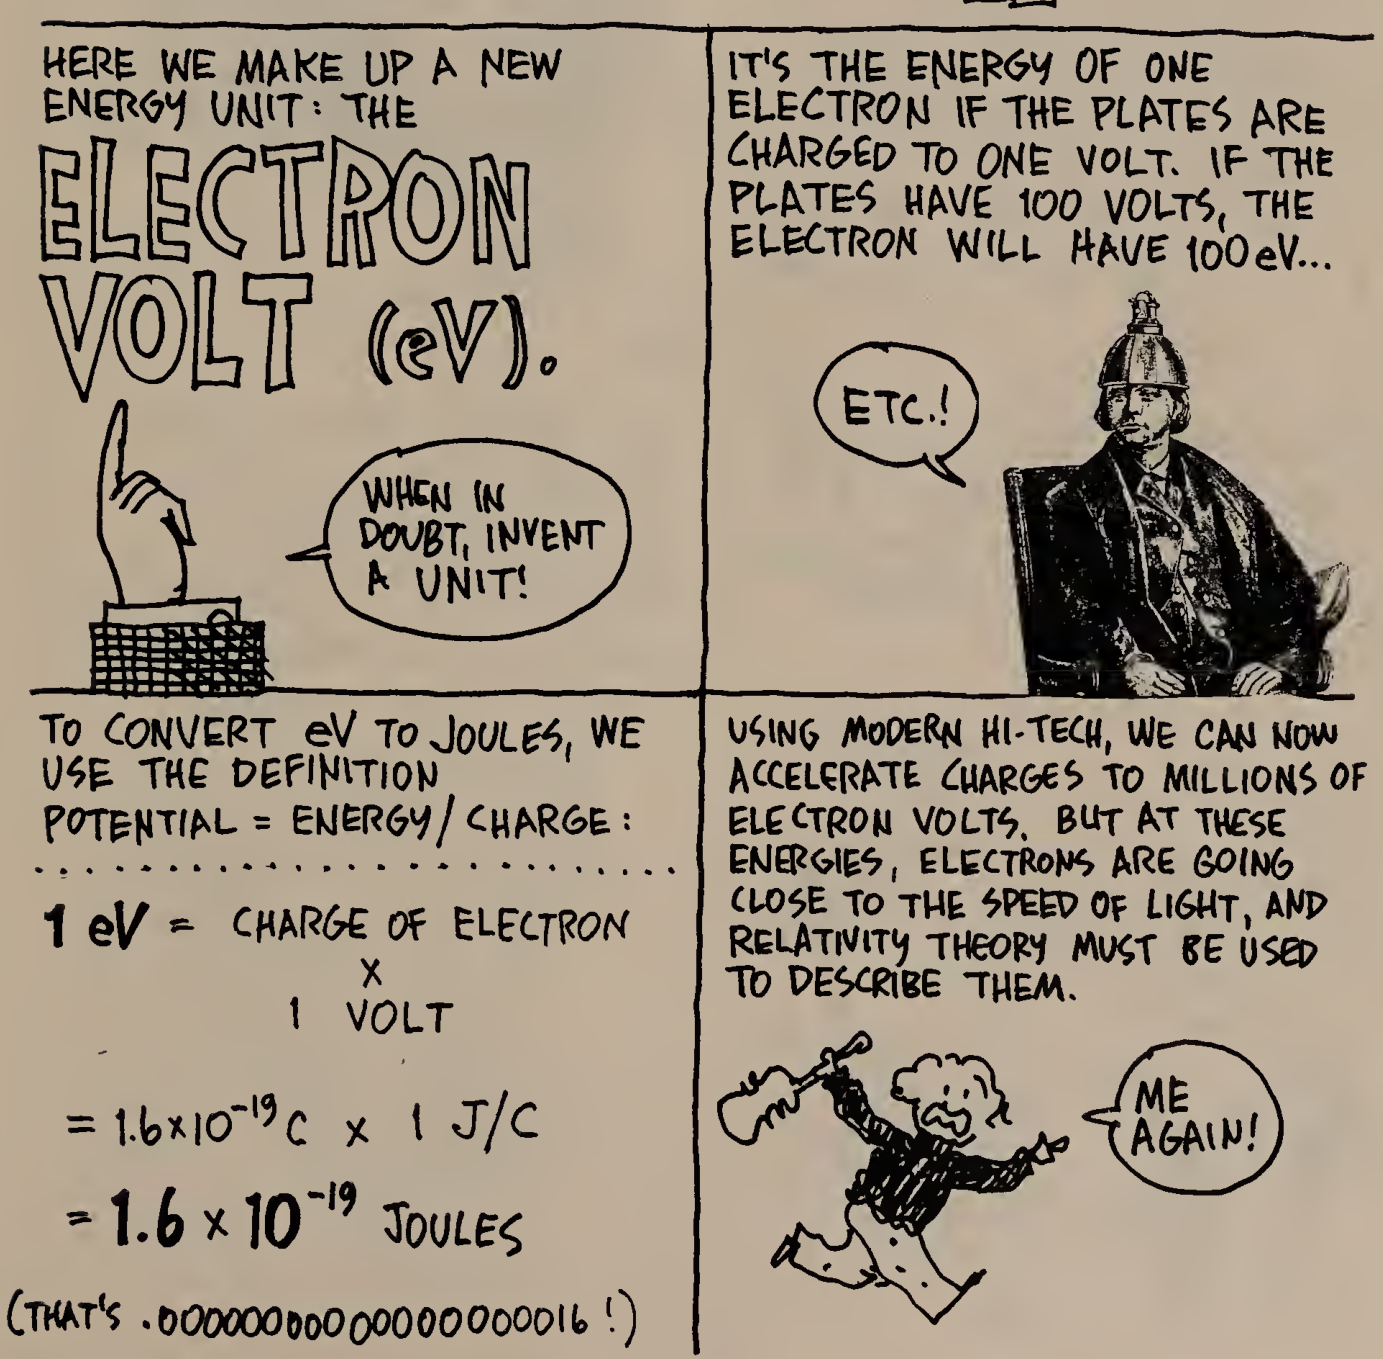 HERE WE MAKE UP A NEW
ENERGY UNIT: THE
ELECTRON
VOLT (eV).
WHEN IN
DOUBT, INVENT
A UNIT!
IT'S THE ENERGY OF ONE
ELECTRON IF THE PLATES ARE
CHARGED TO ONE VOLT. IF THE
PLATES HAVE 100 VOLTS, THE
ELECTRON WILL HAVE 100 eV...
ETC.!
TO CONVERT eV TO JOULES, WE
USE THE DEFINITION
POTENTIAL = ENERGY/CHARGE:
1 eV = CHARGE OF ELECTRON
x
1 VOLT
= 1.6x10⁻¹⁹ C x 1 J/C
= 1.6 x 10⁻¹⁹ JOULES
(THAT'S .00000000000000000016 !)
USING MODERN HI-TECH, WE CAN NOW
ACCELERATE CHARGES TO MILLIONS OF
ELECTRON VOLTS. BUT AT THESE
ENERGIES, ELECTRONS ARE GOING
CLOSE TO THE SPEED OF LIGHT, AND
RELATIVITY THEORY MUST BE USED
TO DESCRIBE THEM.
ME
AGAIN!